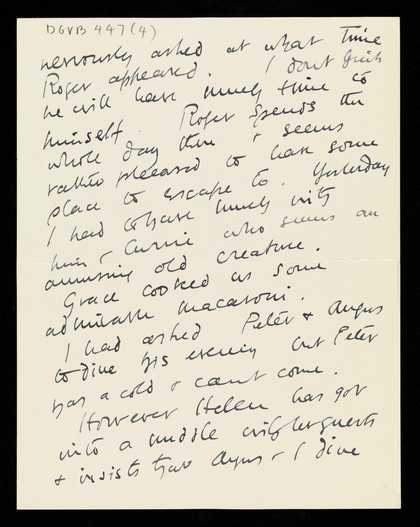 DGVB 447(4)
nervously asked at what time
Roger appeared. I dont think
he will have much time to
himself. Roger spends the
whole day there & seems
rather pleased to have some
place to escape to. Yesterday
I had to have lunch with
him & Currie who seems an
amusing old creature.
Grace cooked us some
admirable macaroni.
I had asked Peter & Angus
to dine this evening but Peter
has a cold & cant come.
However Helen has got
into a muddle with her guests
& insists that Angus & I dine